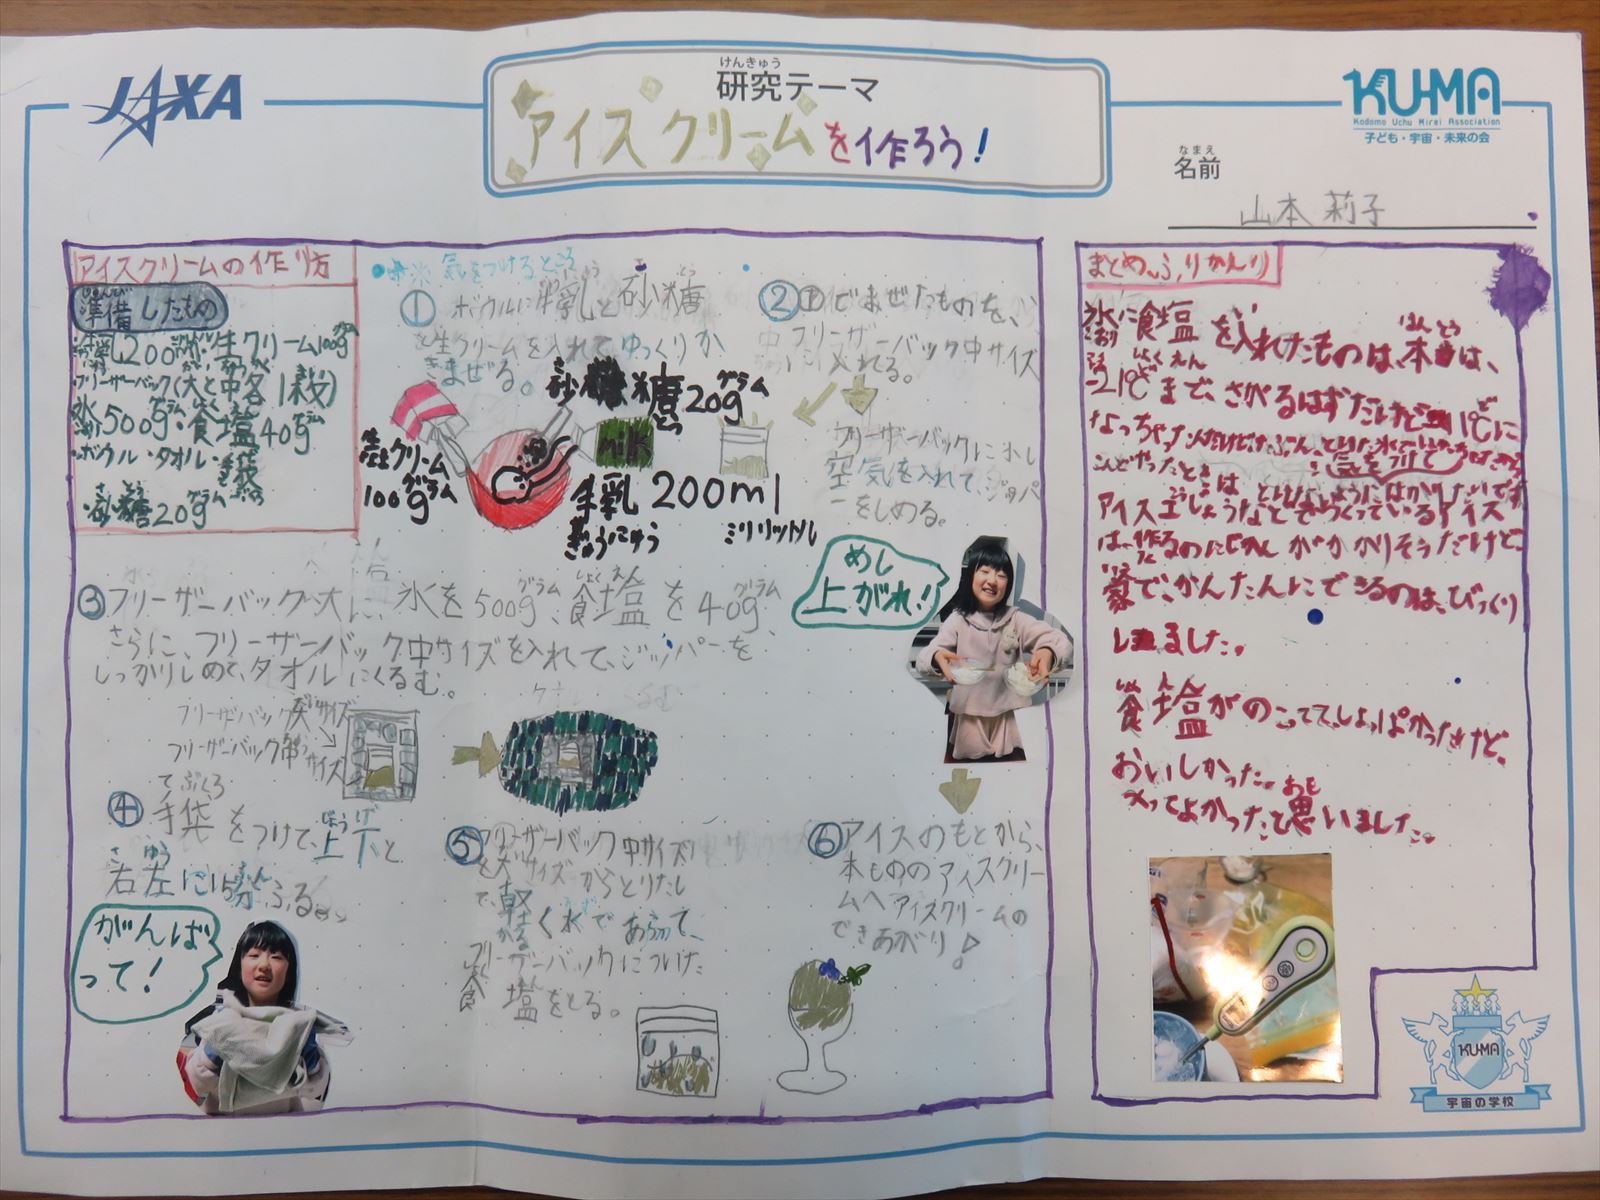 JAXA
けんきゅう
研究テーマ
アイスクリームを作ろう!
KU-MA
Kodomo Uchu Mirai Association
子ども・宇宙・未来の会
なまえ
名前
山本 莉子
アイスクリームの作り方
じゅんび
準備したもの
牛乳200 生クリーム100g
フリーザーバック(大と中各1枚)
氷500g・食塩40g
ボウル・タオル・手袋
砂糖20g
※気をつけるところ
① ボウルに牛乳と砂糖
と生クリームを入れて、ゆっくりか
きまぜる。
砂糖20g
グラム
milk
生クリーム
100g
グラム
牛乳 200ml
ぎゅうにゅう
ミリリットル
② ①でまぜたものを、
フリーザーバック中サイズ
に入れる。
フリーザーバックに少し
空気を入れて、ジッパ
ーをしめる。
③フリーザーバック大に、氷を500g、食塩を40g、
さらに、フリーザーバック中サイズを入れて、ジッパーを
しっかりしめて、タオルにくるむ。
フリーザーバック大サイズ
フリーザーバック中サイズ
めし
上がれ!
てぶくろ
④ 手袋をつけて、上下と
右左に15分ふる。
がんば
って!
⑤フリーザーバック中サイズ
を大サイズからとりだし
て、軽く水であらって、
フリーザーバックについた
食塩をとる。
⑥アイスのもとから、
本もののアイスクリー
ムへアイスクリームの
できあがり!
まとめ、ふりかえり
氷に食塩を入れたものは、本当は、
-21℃まで、さがるはずだけど-1℃に
なっちゃったんだけど、たぶん、
こんどやったときは気をつけて
はかりたいです
アイス工じょうなどでつくっているアイス
は、作るのにじかんがかかりそうだけど、
家で、かんたんにできるのは、びっくり
しました。
食塩がのこってて、しょっぱかったけど、
おいしかった。
作ってよかったと思いました。
KU-MA
宇宙の学校